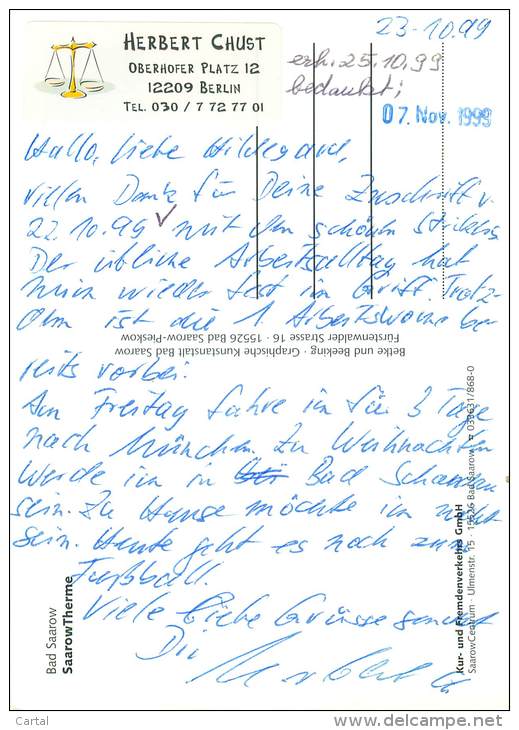 23-10.99
HERBERT CHUST
OBERHOFER PLATZ 12
12209 BERLIN
TEL. 030 / 7 72 77 01
erh. 25.10.99
bedankt;
07. Nov. 1999
Hallo, liebe Hildegard,
vielen Dank für Deine Zuschrift v.
22.10.99 mit den schönen
Der übliche Arbeitsalltag hat
mich wieder fest im Griff. Trotz-
dem ist die 1. Arbeitswoche be
reits vorbei.
Am Freitag fahre ich für 3 Tage
nach München. Zu Weihnachten
werde ich in Bad
sein. Zu Hause möchte ich nicht
sein. Heute geht es noch zum
Fußball.
Viele liebe Grüsse sendet
Dir
Herbert
Betke und Beeking · Graphische Kunstanstalt Bad Saarow
Fürstenwalder Strasse 16 · 15526 Bad Saarow-Pieskow
Bad Saarow
SaarowTherme
Kur- und Fremdenverkehrs GmbH
SaarowCentrum · Ulmenstr. 15 · 15526 Bad Saarow · 033631/868-0
Cartal
www.delcampe.net